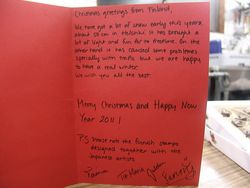 Christmas greetings from Finland,
We have got a lot of snow early this year,
about 50 cm in Helsinki. It has brought a
lot of light and fun for us. On the
other hand it has caused some problems
specially with traffic but we are happy
to have a real winter.
We wish you all the best.
Merry Christmas and Happy New
Year 2011!
P.S. Please note the Finnish stamps
designed together with the
Japanese artists